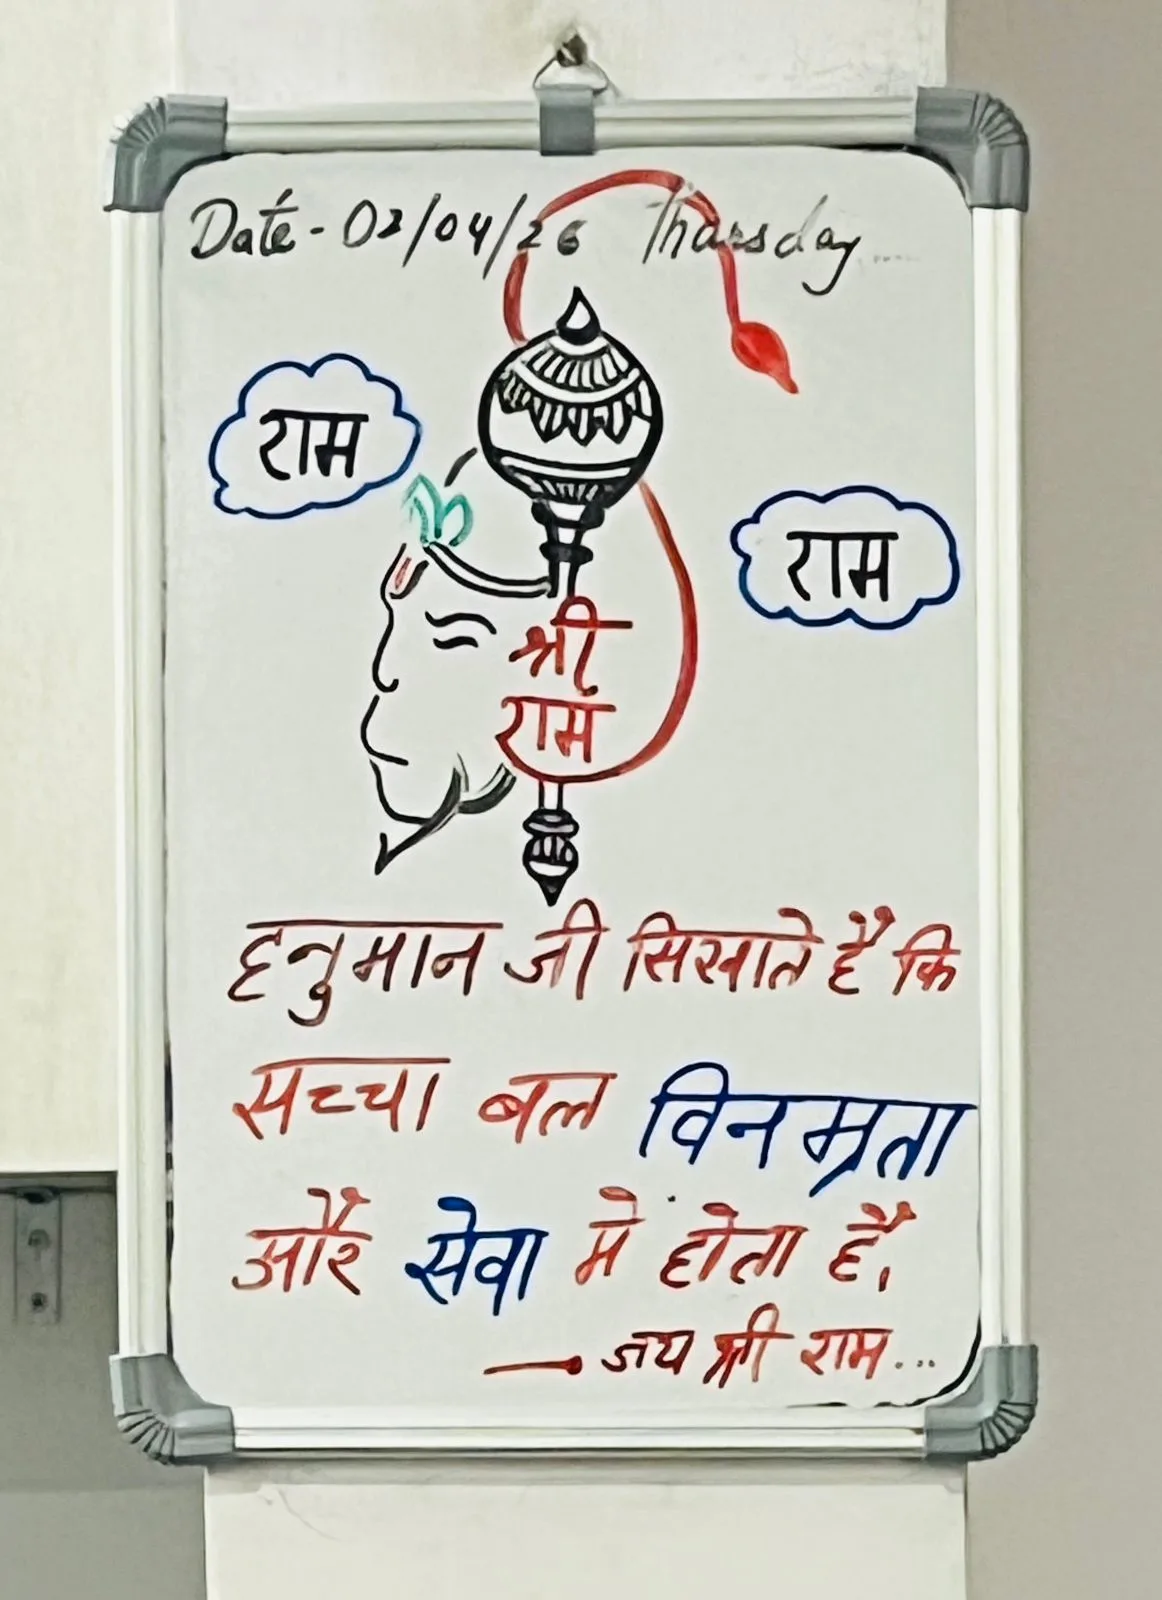 Date - 02/04/26 Thursday
राम
राम
श्री
राम
हनुमान जी सिखाते है कि
सच्चा बल विनम्रता
और सेवा मे होता है,
जय श्री राम...